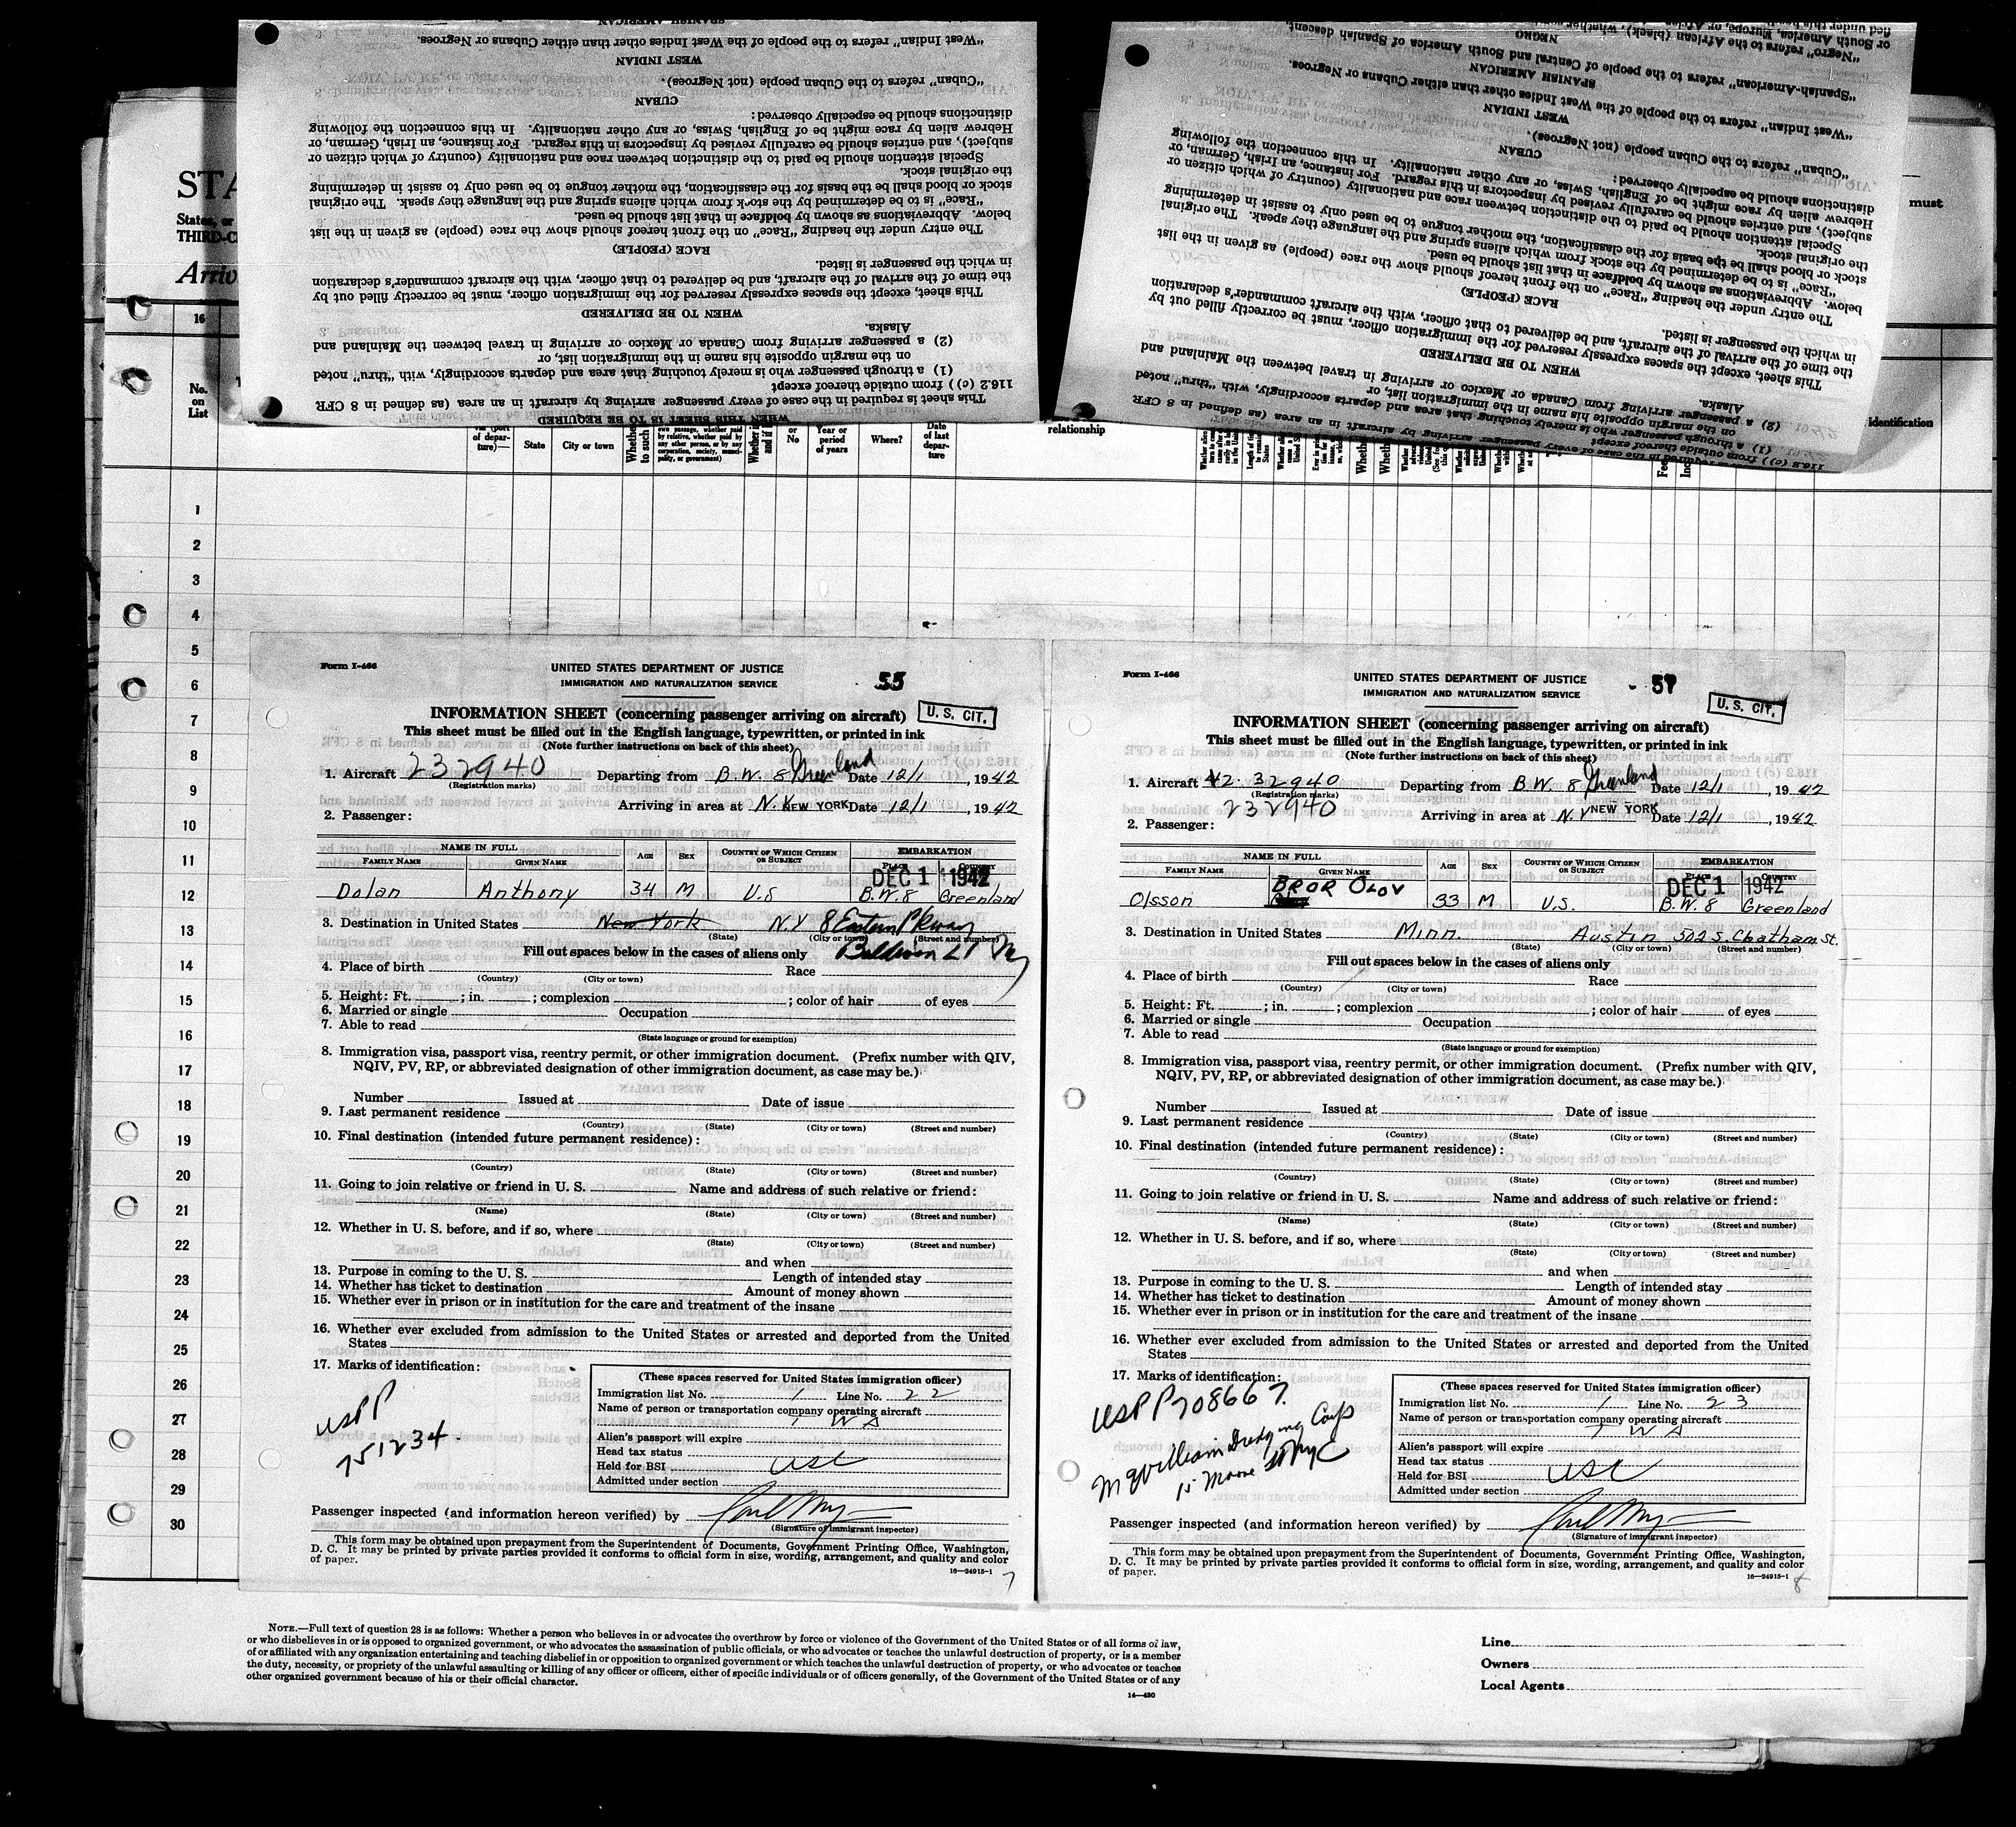 SPANISH AMERICAN
"West Indian" refers to the people of the West Indies other than either Cubans or Negroes.
WEST INDIAN
"Cuban" refers to the Cuban people (not Negroes).
CUBAN
distinctions should be especially observed:
Hebrew alien by race might be of English, Swiss, or any other nationality. In this connection the following
subject), and entries should be carefully revised by inspectors in this regard. For instance, an Irish, German, or
Special attention should be paid to the distinction between race and nationality (country of which citizen or
the original stock.
stock or blood shall be the basis for the classification, the mother tongue to be used only to assist in determining
"Race" is to be determined by the stock from which aliens spring and the language they speak. The original
below. Abbreviations as shown by boldface in that list should be used.
The entry under the heading "Race" on the front hereof should show the race (people) as given in the list
RACE (PEOPLE)
in which the passenger is listed.
the time of the arrival of the aircraft, and be delivered to that officer, with the aircraft commander's declaration
This sheet, except the spaces expressly reserved for the immigration officer, must be correctly filled out by
WHEN TO BE DELIVERED
Alaska.
(2) a passenger arriving from Canada or Mexico or arriving in travel between the Mainland and
on the margin opposite his name in the immigration list, or
(1) a through passenger who is merely touching that area and departs accordingly, with "thru" noted
116.2 (c) ) from outside thereof except
This sheet is required in the case of every passenger arriving by aircraft in an area (as defined in 8 CFR
WHEN THIS SHEET IS TO BE REQUIRED
fied under this
or South America, Europe, or
"Negro" refers to the African (black), whether
NEGRO
"Spanish-American" refers to the people of Central and South America of Spanish descent.
SPANISH AMERICAN
"West Indian" refers to the people of the West Indies other than either Cubans or Negroes.
WEST INDIAN
"Cuban" refers to the Cuban people (not Negroes).
CUBAN
distinctions should be especially observed:
Hebrew alien by race might be of English, Swiss, or any other nationality. In this connection the following
subject), and entries should be carefully revised by inspectors in this regard. For instance, an Irish, German, or
Special attention should be paid to the distinction between race and nationality (country of which citizen or
the original stock.
stock or blood shall be the basis for the classification, the mother tongue to be used only to assist in determining
"Race" is to be determined by the stock from which aliens spring and the language they speak. The original
below. Abbreviations as shown by boldface in that list should be used.
The entry under the heading "Race" on the front hereof should show the race (people) as given in the list
RACE (PEOPLE)
in which the passenger is listed.
the time of the arrival of the aircraft, and be delivered to that officer, with the aircraft commander's declaration
This sheet, except the spaces expressly reserved for the immigration officer, must be correctly filled out by
WHEN TO BE DELIVERED
Alaska.
(2) a passenger arriving from Canada or Mexico or arriving in travel between the Mainland and
on the margin opposite his name in the immigration list, or
(1) a through passenger who is merely touching that area and departs accordingly, with "thru" noted
116.2 (c) ) from outside thereof except
This sheet is required in the case of every passenger arriving by aircraft in an area (as defined in 8 CFR
STA
States, or
THIRD-C
Arriv
must
16
No.
on
List
(port
of depar-
ture)—
State
City or town
own passage, whether paid
by relative, whether paid by
any other person, or by any
corporation, society, munici-
pality, or government)
or
No
Year or
period
of years
Where?
Date
of last
depar-
ture
relationship
identification
1
2
3
4
5
6
7
8
9
10
11
12
13
14
15
16
17
18
19
20
21
22
23
24
25
26
27
28
29
30
Form I-466
UNITED STATES DEPARTMENT OF JUSTICE
IMMIGRATION AND NATURALIZATION SERVICE
55
U. S. CIT.
INFORMATION SHEET (concerning passenger arriving on aircraft)
This sheet must be filled out in the English language, typewritten, or printed in ink
(Note further instructions on back of this sheet)
1. Aircraft 232940 Departing from B.W. 8 Greenland Date 12/1, 1942
(Registration marks)
Arriving in area at N.Y. NEW YORK Date 12/1, 1942
2. Passenger:
NAME IN FULL
FAMILY NAME GIVEN NAME AGE SEX COUNTRY OF WHICH CITIZEN OR SUBJECT EMBARKATION PLACE COUNTRY
DEC 1 1942
Dolan Anthony 34 M U.S B.W. 8 Greenland
3. Destination in United States New York N.Y 8 Eastern Pkway
(State) (City or town) (Street and number)
Baldwin L I NY
Fill out spaces below in the cases of aliens only
4. Place of birth Race
(Country) (City or town)
5. Height: Ft. ; in. ; complexion ; color of hair of eyes
6. Married or single Occupation
7. Able to read
(State language or ground for exemption)
8. Immigration visa, passport visa, reentry permit, or other immigration document. (Prefix number with QIV,
NQIV, PV, RP, or abbreviated designation of other immigration document, as case may be.)
Number Issued at Date of issue
9. Last permanent residence
(Country) (State) (City or town) (Street and number)
10. Final destination (intended future permanent residence):
(Country) (State) (City or town) (Street and number)
11. Going to join relative or friend in U. S. Name and address of such relative or friend:
(Name) (State) (City or town) (Street and number)
12. Whether in U. S. before, and if so, where
(State) (City or town) (Street and number)
and when
13. Purpose in coming to the U. S. Length of intended stay
14. Whether has ticket to destination Amount of money shown
15. Whether ever in prison or in institution for the care and treatment of the insane
16. Whether ever excluded from admission to the United States or arrested and deported from the United
States
17. Marks of identification:
USPP
751234.
(These spaces reserved for United States immigration officer)
Immigration list No. 1 Line No. 22
Name of person or transportation company operating aircraft
TWA
Alien's passport will expire
Head tax status
Held for BSI USC
Admitted under section
Passenger inspected (and information hereon verified) by
(Signature of immigrant inspector)
This form may be obtained upon prepayment from the Superintendent of Documents, Government Printing Office, Washington,
D. C. It may be printed by private parties provided it conforms to official form in size, wording, arrangement, and quality and color
of paper.
16—24915-1
7
Form I-466
UNITED STATES DEPARTMENT OF JUSTICE
IMMIGRATION AND NATURALIZATION SERVICE
U. S. CIT.
INFORMATION SHEET (concerning passenger arriving on aircraft)
This sheet must be filled out in the English language, typewritten, or printed in ink
(Note further instructions on back of this sheet)
1. Aircraft 42-32940 Departing from B.W. 8 Greenland Date 12/1, 1942
(Registration marks)
232940
Arriving in area at N.Y NEW YORK Date 12/1, 1942
2. Passenger:
NAME IN FULL
FAMILY NAME GIVEN NAME AGE SEX COUNTRY OF WHICH CITIZEN OR SUBJECT EMBARKATION PLACE COUNTRY
DEC 1 1942
Olsson BROR OLOV 33 M U.S. B.W. 8 Greenland
3. Destination in United States Minn. Austin 502 S. Chatham St.
(State) (City or town) (Street and number)
Fill out spaces below in the cases of aliens only
4. Place of birth Race
(Country) (City or town)
5. Height: Ft. ; in. ; complexion ; color of hair of eyes
6. Married or single Occupation
7. Able to read
(State language or ground for exemption)
8. Immigration visa, passport visa, reentry permit, or other immigration document. (Prefix number with QIV,
NQIV, PV, RP, or abbreviated designation of other immigration document, as case may be.)
Number Issued at Date of issue
9. Last permanent residence
(Country) (State) (City or town) (Street and number)
10. Final destination (intended future permanent residence):
(Country) (State) (City or town) (Street and number)
11. Going to join relative or friend in U. S. Name and address of such relative or friend:
(Name) (State) (City or town) (Street and number)
12. Whether in U. S. before, and if so, where
(State) (City or town) (Street and number)
and when
13. Purpose in coming to the U. S. Length of intended stay
14. Whether has ticket to destination Amount of money shown
15. Whether ever in prison or in institution for the care and treatment of the insane
16. Whether ever excluded from admission to the United States or arrested and deported from the United
States
17. Marks of identification:
USPP 708667.
McWilliam Dredging Corp
15 Moore St NYC
(These spaces reserved for United States immigration officer)
Immigration list No. 1 Line No. 23
Name of person or transportation company operating aircraft
TWA
Alien's passport will expire
Head tax status
Held for BSI USC
Admitted under section
Passenger inspected (and information hereon verified) by
(Signature of immigrant inspector)
This form may be obtained upon prepayment from the Superintendent of Documents, Government Printing Office, Washington,
D. C. It may be printed by private parties provided it conforms to official form in size, wording, arrangement, and quality and color
of paper.
16—24915-1
8
NOTE.—Full text of question 28 is as follows: Whether a person who believes in or advocates the overthrow by force or violence of the Government of the United States or of all forms of law,
or who disbelieves in or is opposed to organized government, or who advocates the assassination of public officials, or who advocates or teaches the unlawful destruction of property, or is a member
of or affiliated with any organization entertaining and teaching disbelief in or opposition to organized government or which teaches the unlawful destruction of property, or who advocates or teaches
the duty, necessity, or propriety of the unlawful assaulting or killing of any officer or officers, either of specific individuals or of officers generally, of the Government of the United States or of any
other organized government because of his or their official character.
14—430
Line
Owners
Local Agents